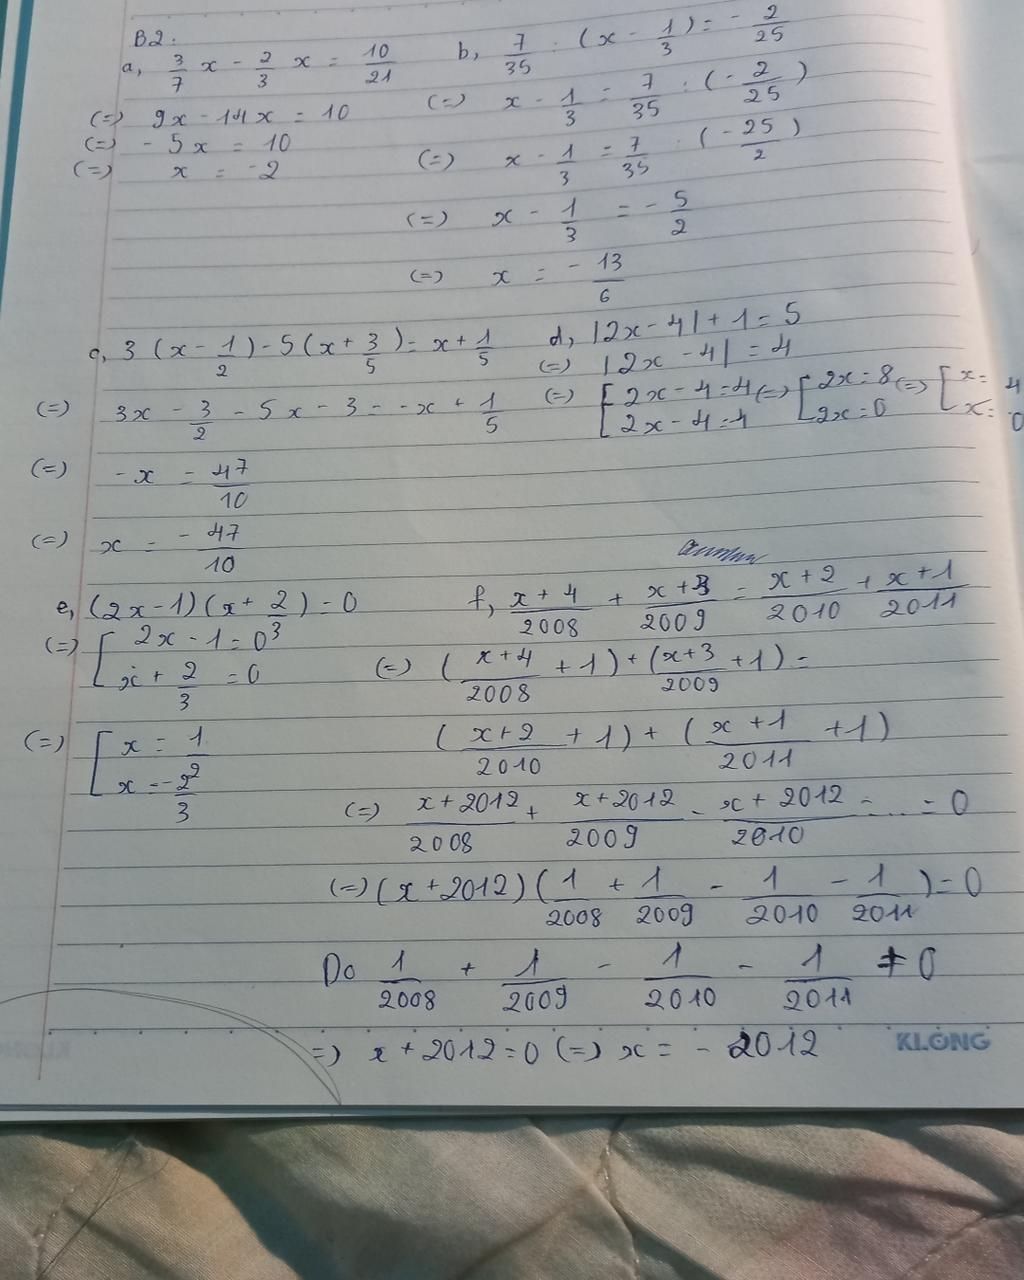 B2.
a, 3/7 x - 2/3 x = 10/21
(=) 9x - 14x = 10
(=) - 5x = 10
(=) x = -2
b, 7/35 : (x - 1/3) = - 2/25
(=) x - 1/3 = 7/35 : (- 2/25)
(=) x - 1/3 = 7/35 . (- 25/2)
(=) x - 1/3 = - 5/2
(=) x = - 13/6
c, 3 (x - 1/2) - 5(x + 3/5) = x + 1/5
(=) 3x - 3/2 - 5x - 3 - -x + 1/5
(=) -x = 47/10
(=) x = - 47/10
d, |2x - 4| + 1 = 5
(=) |2x - 4| = 4
(=) [ 2x - 4 = 4 (=) [ 2x = 8 (=) [ x = 4
2x - 4 = -4 2x = 0 x = 0
e, (2x - 1) (x + 2/3) = 0
(=) [ 2x - 1 = 0
x + 2/3 = 0
(=) [ x = 1/2
x = - 2/3
f, x + 4/2008 + x + 3/2009 = x + 2/2010 + x + 1/2011
(=) (x + 4/2008 + 1) + (x + 3/2009 + 1) =
(x + 2/2010 + 1) + (x + 1/2011 + 1)
(=) x + 2012/2008 + x + 2012/2009 - x + 2012/2010 - ... = 0
(=) (x + 2012) (1/2008 + 1/2009 - 1/2010 - 1/2011) = 0
Do 1/2008 + 1/2009 - 1/2010 - 1/2011 ≠ 0
=) x + 2012 = 0 (=) x = - 2012
KLONG